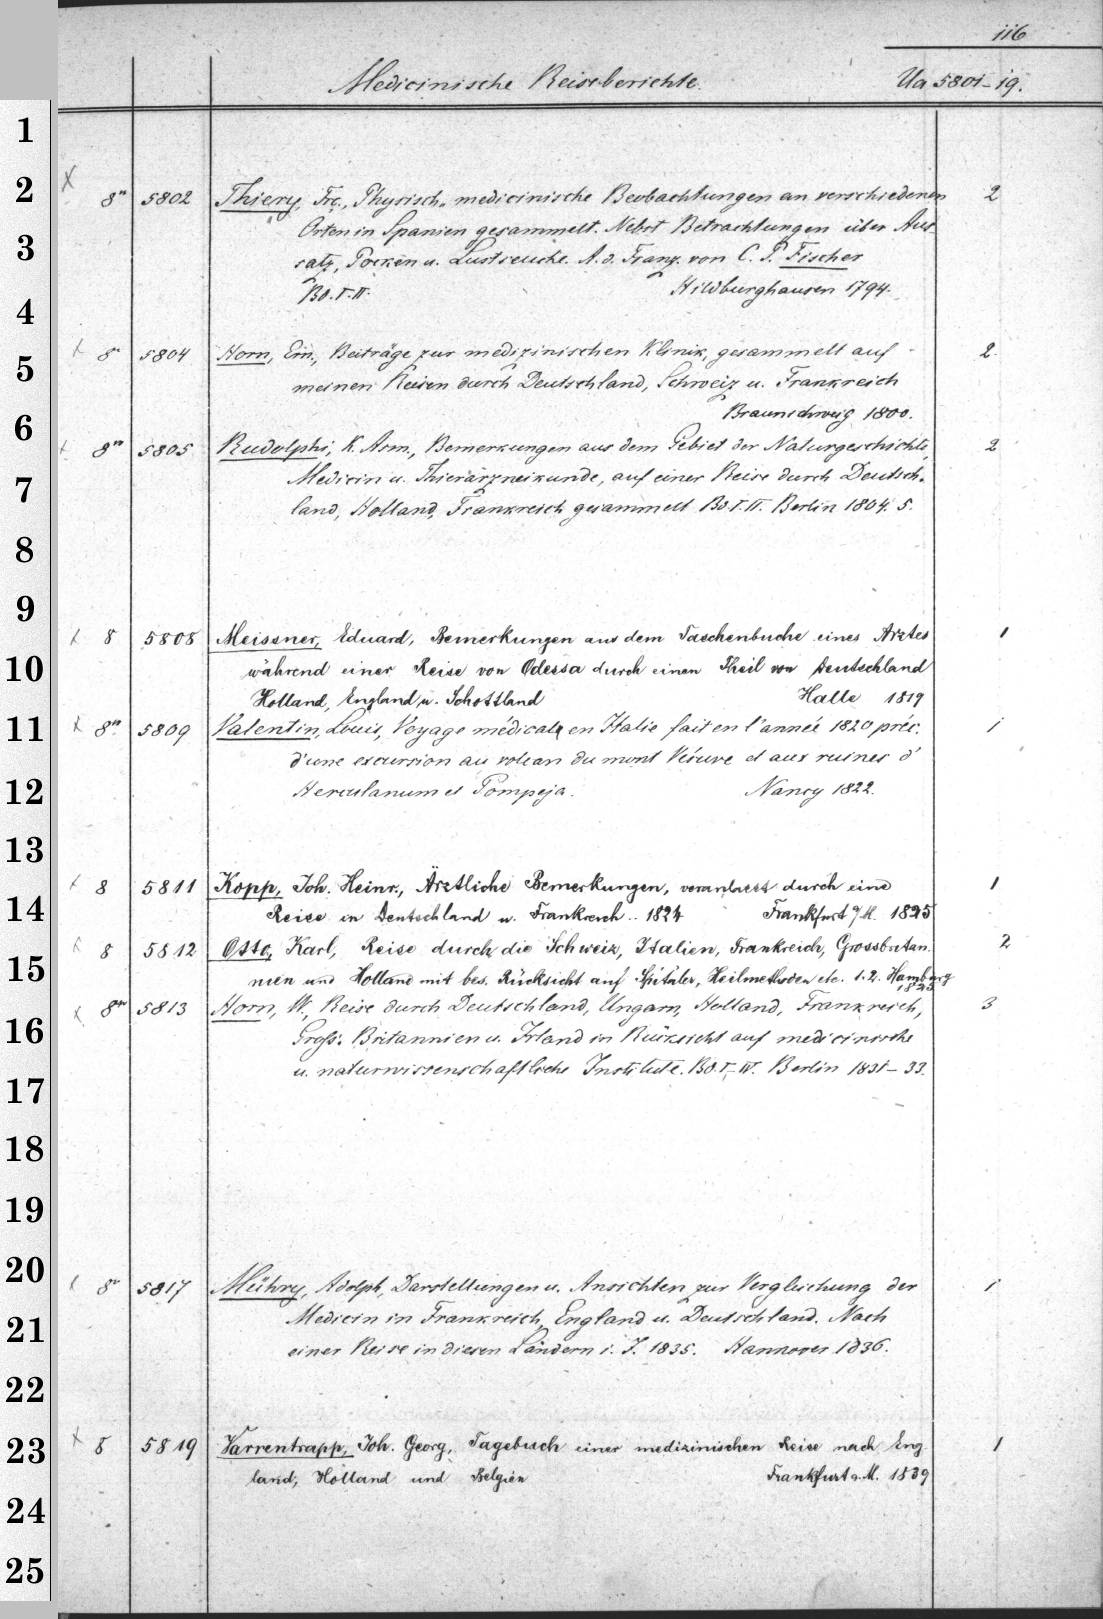 116
Medicinische Reiseberichte. Ua 5801-19.
1
2
x 8° 5802 Thiery, Frç., Physisch-medicinische Beobachtungen an verschiedenen 2
Orten in Spanien gesammelt. Nebst Betrachtungen über Aus-
3
satz, Pocken u. Lustseuche. A. d. Franz. von C. P. Fischer
Bd. I. II. Hildburghausen 1794.
4
x 8° 5804 Horn, Ern., Beiträge zur medizinischen Klinik, gesammelt auf 2.
5
meinen Reisen durch Deutschland, Schweiz u. Frankreich
Braunschweig 1800.
6
x 8° 5805 Rudolphi, K. Asm., Bemerkungen aus dem Gebiet der Naturgeschichte, 2
7
Medicin u. Thierärzneikunde, auf einer Reise durch Deutsch-
land, Holland, Frankreich gesammelt Bd. I. II. Berlin 1804. 5.
8
9
x 8 5808 Meissner, Eduard, Bemerkungen aus dem Taschenbuche eines Arztes 1
10
während einer Reise von Odessa durch einen Theil von Deutschland
Holland, England, u. Schottland Halle 1819
11
x 8° 5809 Valentin, Louis, Voyage médicale en Italie fait en l'année 1820 préc. 1
d'une excursion au volcan du mont Vésuve et aux ruines d'
12
Herculanum et Pompeja. Nancy 1822.
13
x 8 5811 Kopp, Joh. Heinr., Ärztliche Bemerkungen, veranlasst durch eine 1
14
Reise in Deutschland u. Frankreich .. 1824 Frankfurt a/M. 1825
x 8 5812 Otto, Karl, Reise durch die Schweiz, Italien, Frankreich, Grossbritan- 2
15
nien und Holland mit bes. Rücksicht auf Spitäler, Heilmethoden etc. 1.2. Hamburg
1825
x 8° 5813 Horn, W., Reise durch Deutschland, Ungarn, Holland, Frankreich, 3
16
Groß-Britannien u. Irland in Rücksicht auf medicinische
17
u. naturwissenschaftliche Institute. Bd. I-IV. Berlin 1831-33.
18
19
20
x 8° 5817 Mühry, Adolph, Darstellungen u. Ansichten zur Vergleichung der 1
21
Medicin in Frankreich, England u. Deutschland. Nach
einer Reise in diesen Ländern i. J. 1835. Hannover 1836.
22
23
x 8 5819 Varrentrapp, Joh. Georg, Tagebuch einer medizinischen Reise nach Eng- 1
land, Holland und Belgien Frankfurt a. M. 1839
24
25